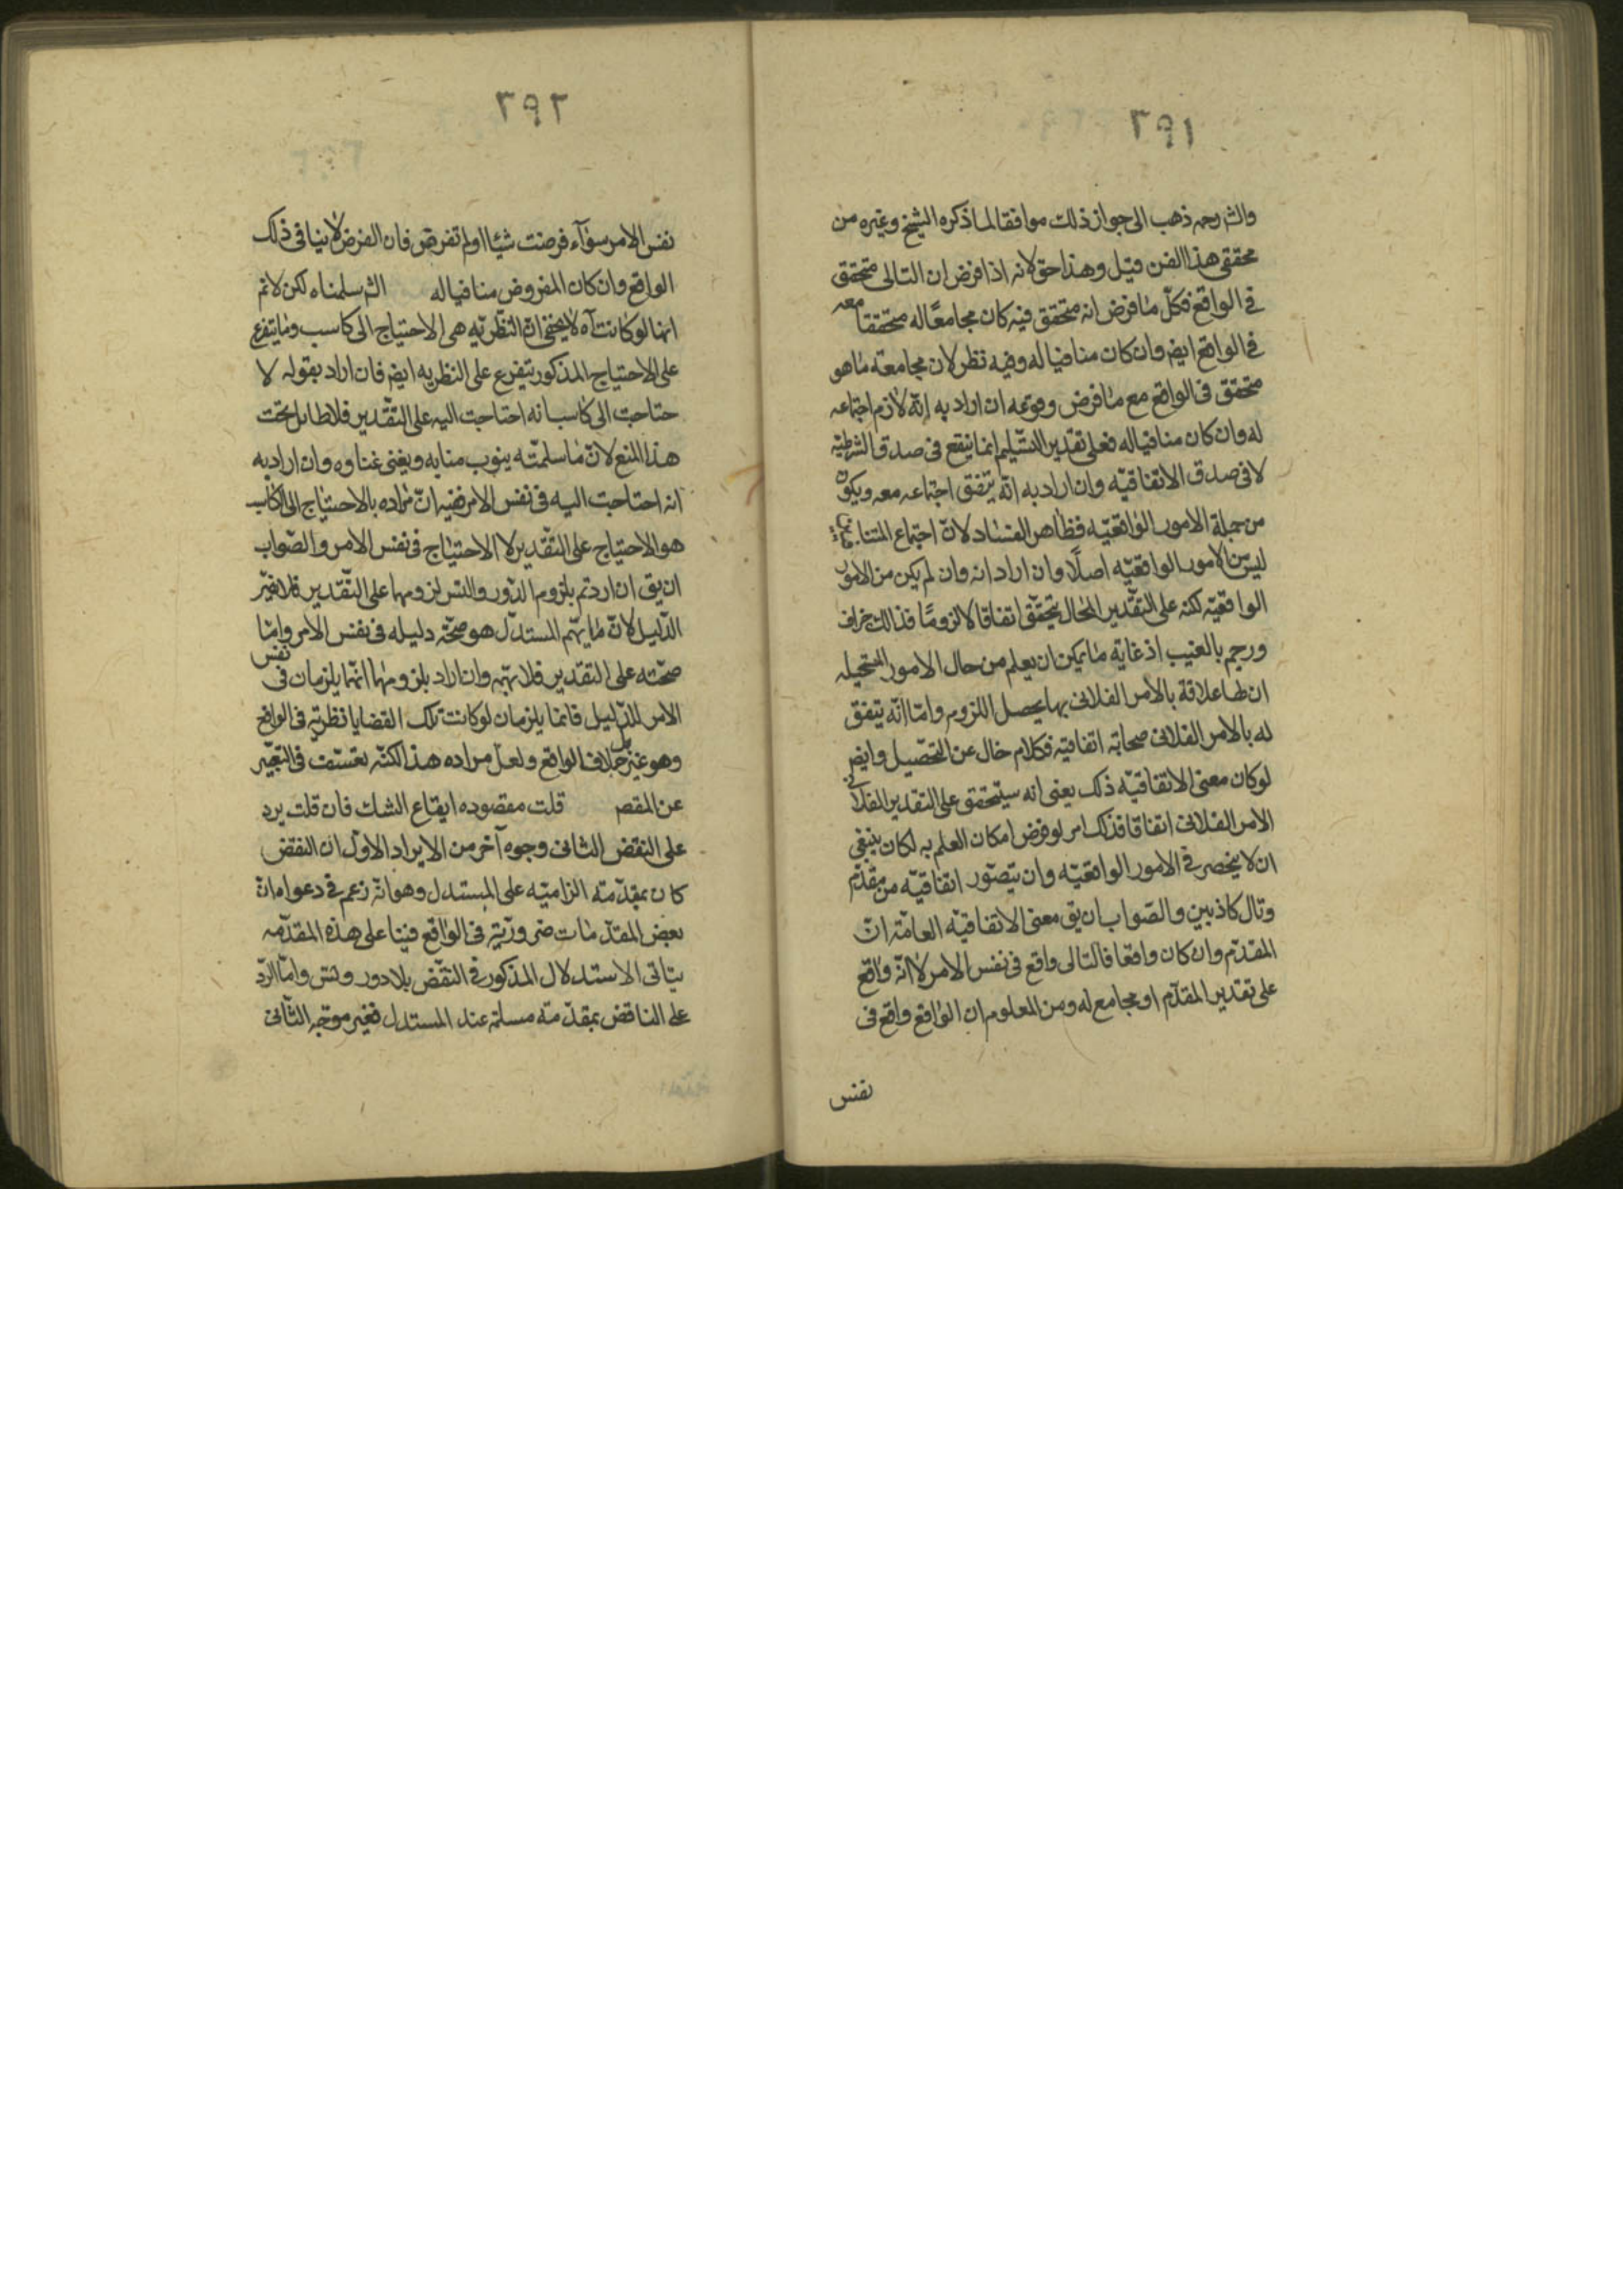 ٢٩١
والش رحمه ذهب الى جواز ذلك موافقا لما ذكره الشيخ وغيره من
محققى هذا الفن قيل وهذا حق لانه اذا فرض ان التالى متحقق
فى الواقع فكل ما فرض انه متحقق فيه كان مجامعًا له متحققا معه
فى الواقع ايض وان كان منافيا له وفيه نظر لان مجامعة ما هو
متحقق فى الواقع مع ما فرض وقوعه ان اراد به انّه لازم اجتماعه
له وان كان منافيا له فعلى تقدير التسّليم انما ينفع فى صدق الشرطيّه
لا فى صدق الاتفاقيّه وان اراد به انّه يتفق اجتماعه معه ويكون
من جملة الامور الواقعيّه فظاهر الفساد لانّ اجتماع
ليس من الامور الواقعيّه اصلًا وان اراد انه وان لم يكن من الامور
الواقعيّه لكنه على التقّدير المحال يتحقّق اتفاقا لا لزومًا فذالك خراف
ورجم بالغيب اذ غاية ما يمكن ان يعلم من حال الامور المستحيله
ان لها علاقة بالامر الفلانى بها يحصل اللزوم وامّا انّه يتفق
له بالامر الفلانى صحابة اتفاقيّه فكلام خال عن التحصّيل وايض
لو كان معنى الاتفاقيّه ذلك يعنى انه سيتحقق على التقدير الفلانى
الامر الفلانى اتفاقا فذلك امر لو فرض امكان العلم به لكان ينبغى
ان لا يخصر فى الامور الواقعيّه وان يتصّور اتفاقيّه من مقدّم
وتال كاذبين والصّواب ان يق معنى الاتفاقيّه العامّة انّ
المقدّم وان كان واقعًا فالتالى واقع فى نفس الامر لا انّه واقع
على تقدير المقدّم او مجامع له ومن المعلوم ان الواقع واقع فى
نفس
٢٩٢
نفس الامر سوآء فرضت شيئا او لم تفرض فان الفرض لا ينافى ذلك
الواقع وان كان المفروض منافيا له الش سلمناه لكن لا تم
انها لو كانت آه لا يخفى انّ النظريّه هى الاحتياج الى كاسب وما يتفرع
على الاحتياج المذكور يتفرع على النظريه ايض فان اراد بقوله لا
حتاجت الى كاسب انه احتاجت اليه على التقّدير فلا طايل تحت
هذا المنع لانّ ما سلمّته ينوب منابه ويغنى غناوه وان اراد به
انه احتاجت اليه فى نفس الامر ففيه انّ مراده بالاحتياج الى الكاسب
هو الاحتياج على التقّدير لا الاحتياج فى نفس الامر والصّواب
ان يق ان اردتم بلزوم الدّور والتس لزومها على التقّدير فلا فيّر
الدّليل لانّ ما يهّم المستدّل هو صحّة دليله فى نفس الامر وامّا
صحّته على التقدير فلا يهّمه وان اراد بلزومها انّهما يلزمان فى نفس
الامر للدّليل فانما يلزمان لو كانت تلك القضايا نظريّه فى الواقع
وهو غير بل خلاف الواقع ولعلّ مراده هذا لكنّه تعسّف فى التعبير
عن المقص قلت مقصوده ايقاع الشك فان قلت يرد
على النقض الثانى وجوه آخر من الايراد الاوّل ان النقض
كان بمقدّمة الزاميّه على المستدل وهو انّه زعم فى دعواه انّ
بعض المقدّمات ضروريّة فى الواقع فبنا على هذه المقدّمه
يتاتى الاستدلال المذكور فى النقّض بلا دور وتس وامّا الردّ
على الناقض بمقدّمة مسلمّة عند المستدل فغير موجّه الثّانى